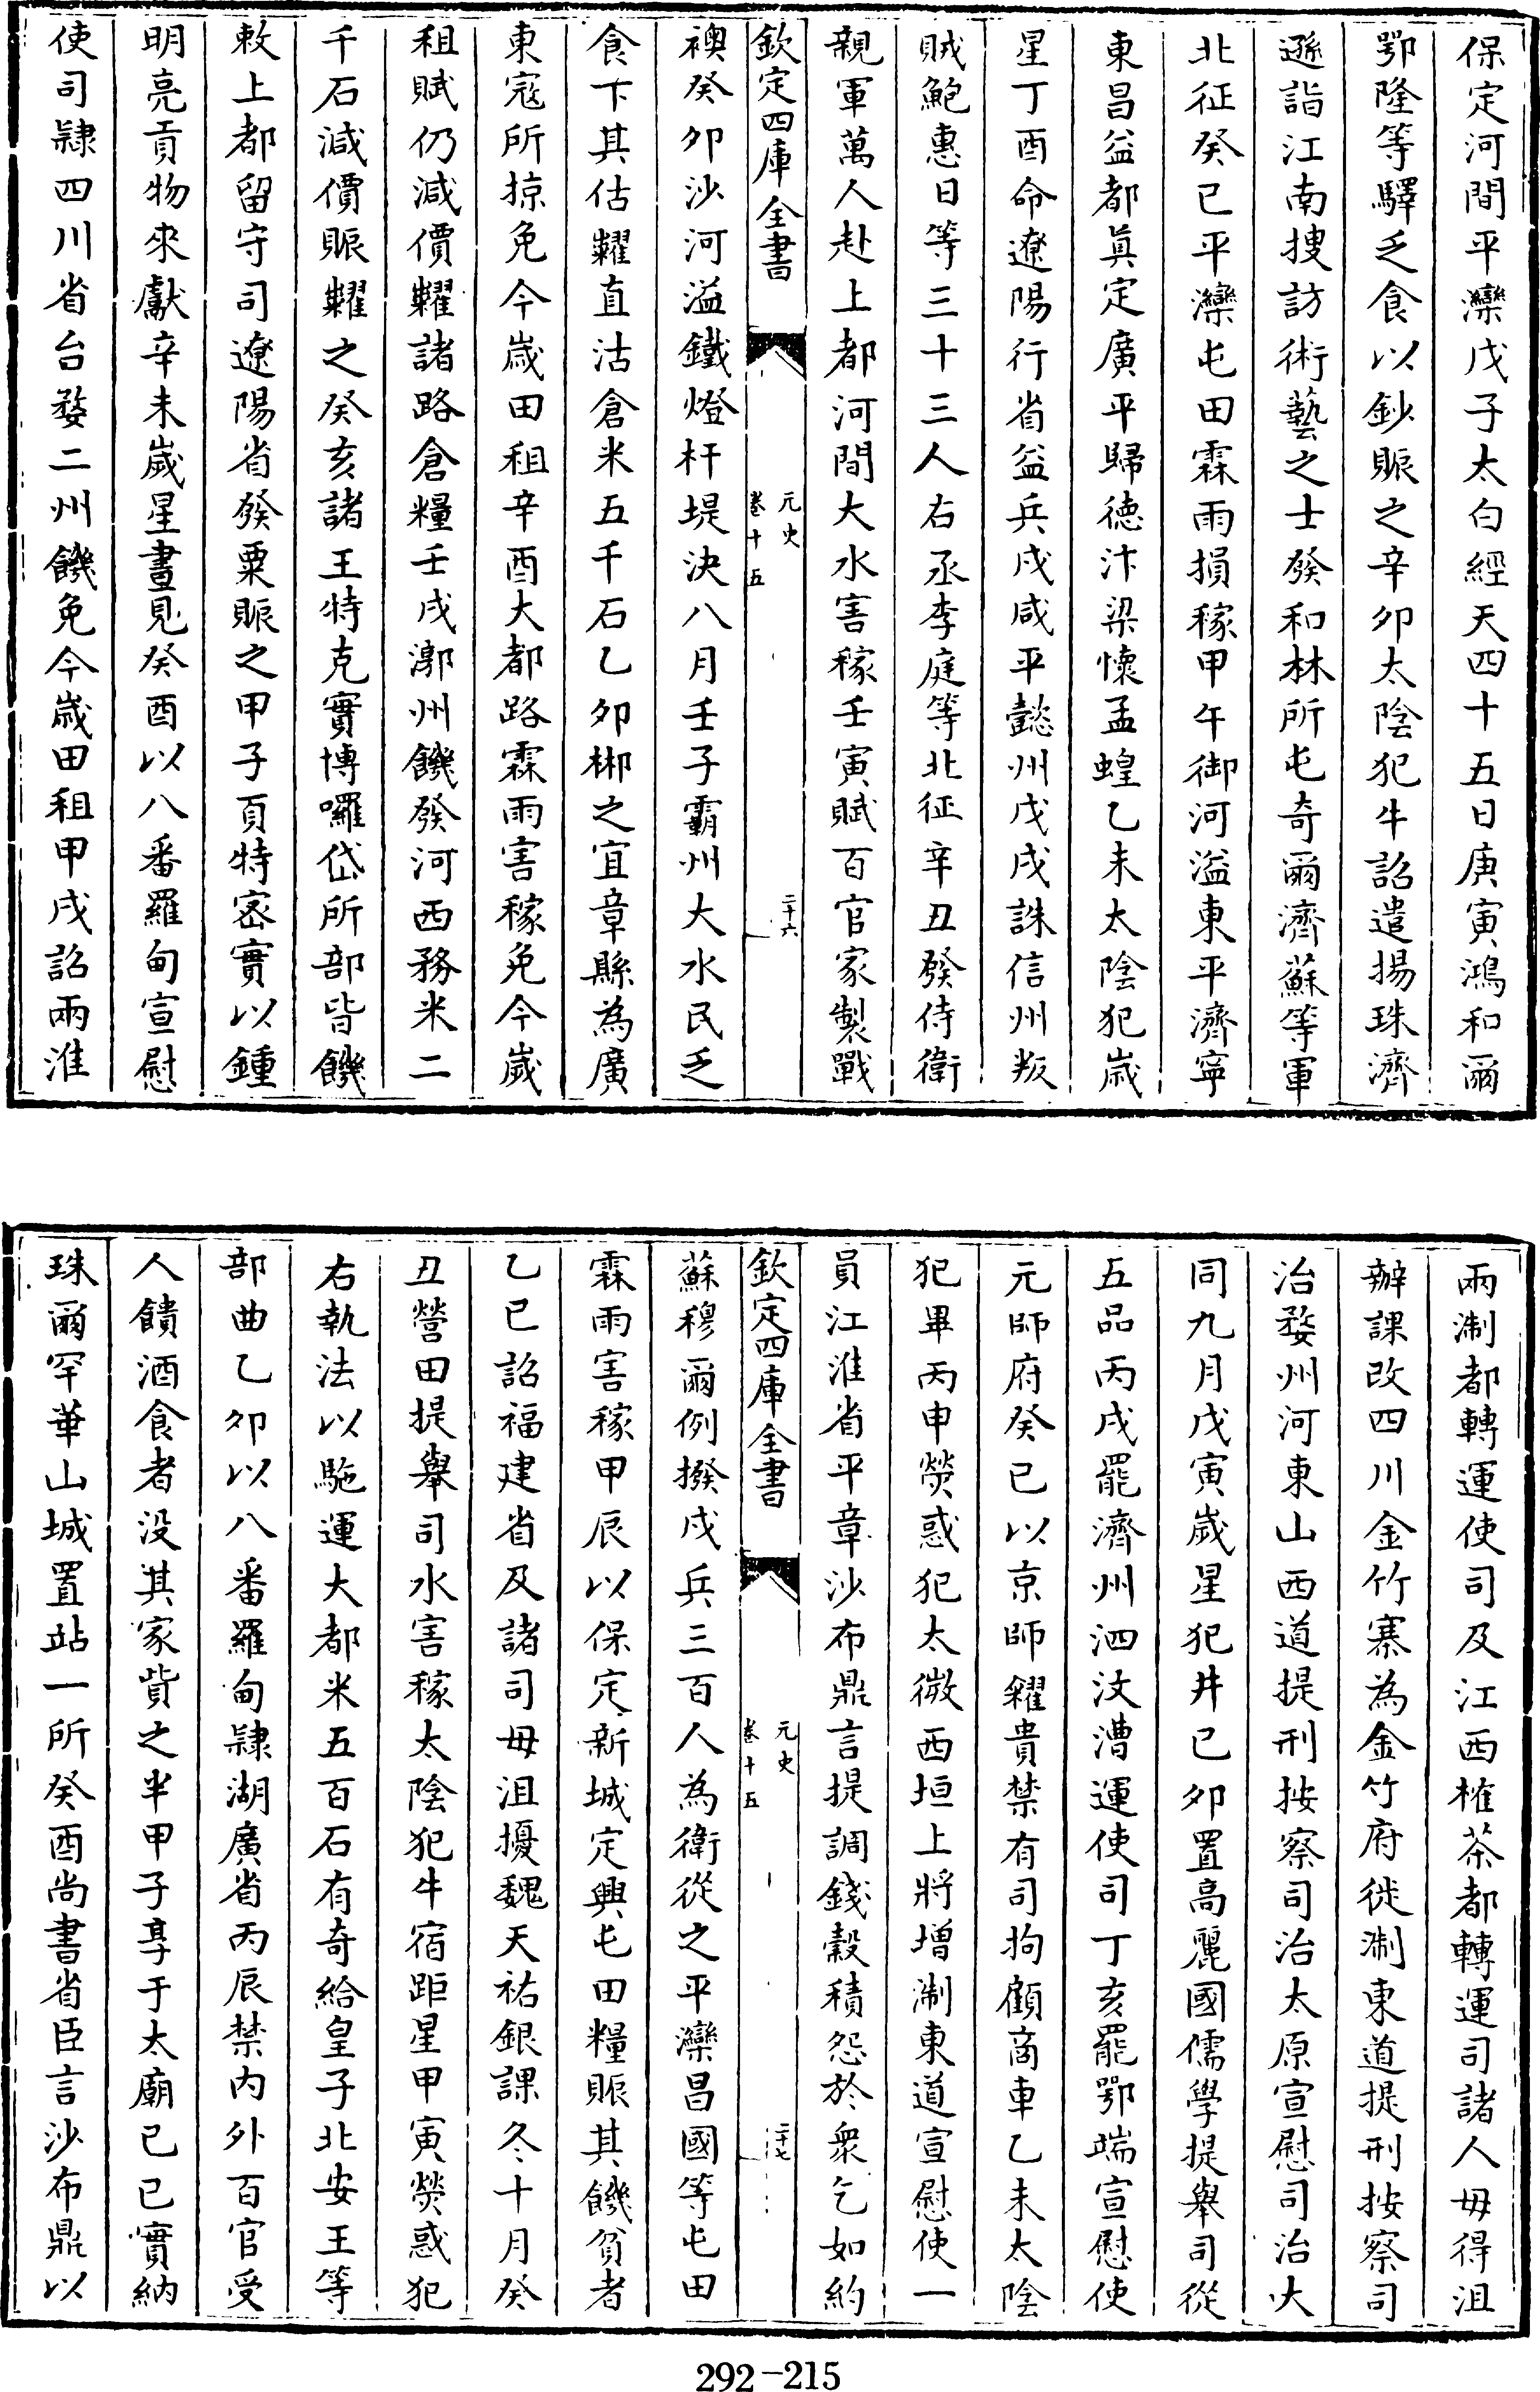 保定河間平灤戊子太白經天四十五日庚寅鴻和爾
鄂隆等驛乏食以鈔賑之辛卯太陰犯牛詔遣揚珠濟
遜詣江南搜訪術藝之士發和林所屯奇爾濟蘇等軍
北征癸巳平灤屯田霖雨損稼甲午御河溢東平濟寧
東昌益都眞定廣平歸德汴梁懷孟蝗乙未太陰犯歳
星丁酉命遼陽行省益兵戍咸平懿州戊戌誅信州叛
賊鮑惠日等三十三人右丞李庭等北征辛丑發侍衛
親軍萬人赴上都河間大水害稼壬寅賦百官家製戰
欽定四庫全書
元史
卷十五
二十六
襖癸卯沙河溢鐵燈杆堤決八月壬子霸州大水民乏
食下其估糶直沽倉米五千石乙卯郴之宜章縣為廣
東寇所掠免今歳田租辛酉大都路霖雨害稼免今歲
租賦仍減價糶諸路倉糧壬戌漷州饑發河西務米二
千石減價賑糶之癸亥諸王特克實博囉岱所部皆饑
敕上都留守司遼陽省發粟賑之甲子頁特密實以鍾
明亮貢物來獻辛未歲星晝見癸酉以八番羅甸宣慰
使司隸四川省台婺二州饑免今歳田租甲戌詔兩淮
兩浙都轉運使司及江西榷茶都轉運司諸人毋得沮
辦課改四川金竹寨為金竹府徙浙東道提刑按察司
治婺州河東山西道提刑按察司治太原宣慰司治大
同九月戊寅歲星犯井己卯置高麗國儒學提舉司從
五品丙戌罷濟州泗汶漕運使司丁亥罷鄂端宣慰使
元師府癸巳以京師糴貴禁有司拘顧商車乙未太陰
犯畢丙申熒惑犯太微西垣上將增浙東道宣慰使一
員江淮省平章沙布鼎言提調錢糓積怨於衆乞如約
欽定四庫全書
元史
卷十五
二十七
蘇穆爾例撥戍兵三百人為衛從之平灤昌國等屯田
霖雨害稼甲辰以保定新城定興屯田糧賑其饑貧者
乙巳詔福建省及諸司毋沮擾魏天祐銀課冬十月癸
丑營田提舉司水害稼太陰犯牛宿距星甲寅熒惑犯
右執法以駞運大都米五百石有奇給皇子北安王等
部曲乙卯以八番羅甸隸湖廣省丙辰禁内外百官受
人饋酒食者没其家貲之半甲子享于太廟己巳實納
珠爾罕華山城置站一所癸酉尚書省臣言沙布鼎以
292-215